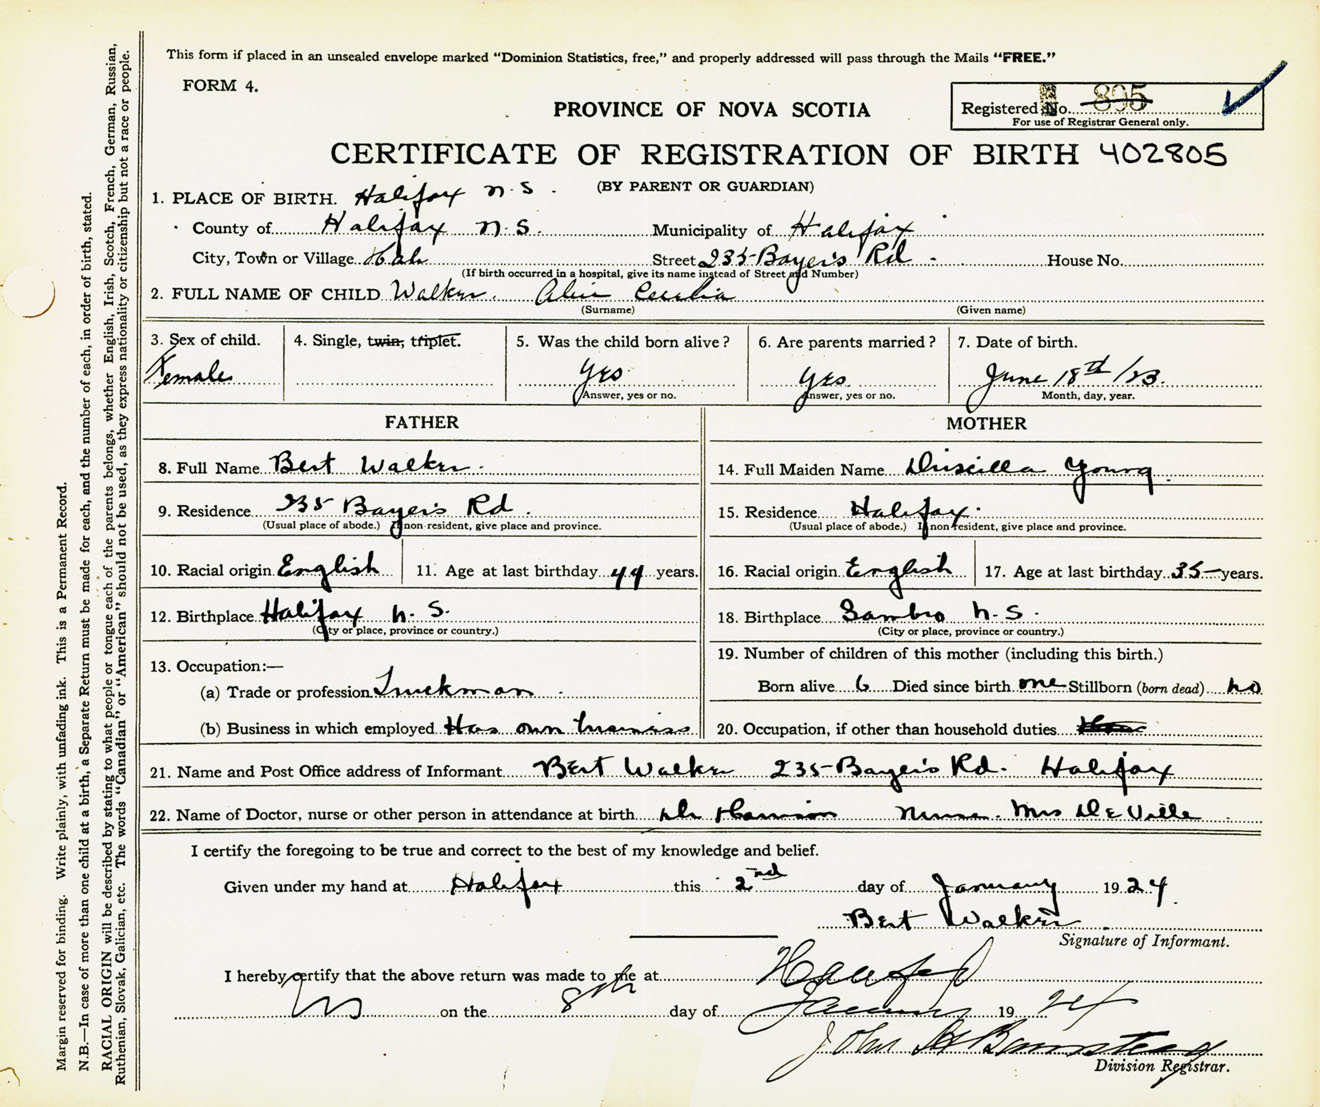 This form if placed in an unsealed envelope marked “Dominion Statistics, free,” and properly addressed will pass through the Mails “FREE.”
FORM 4.
Registered No. 895
For use of Registrar General only.
PROVINCE OF NOVA SCOTIA
CERTIFICATE OF REGISTRATION OF BIRTH 402805
(BY PARENT OR GUARDIAN)
1. PLACE OF BIRTH. Halifax N.S.
County of Halifax N.S. Municipality of Halifax
City, Town or Village Hali Street 235 Bayer's Rd. House No.
(If birth occurred in a hospital, give its name instead of Street and Number)
2. FULL NAME OF CHILD Walker. Alice Cecelia
(Surname) (Given name)
3. Sex of child. 4. Single, twin, triplet. 5. Was the child born alive? 6. Are parents married? 7. Date of birth.
Female Yes Yes June 18th/23.
Answer, yes or no. Answer, yes or no. Month, day, year.
FATHER MOTHER
8. Full Name Bert Walker. 14. Full Maiden Name Driscilla Young.
9. Residence 235 Bayer's Rd. 15. Residence Halifax.
(Usual place of abode.) If non-resident, give place and province. (Usual place of abode.) If non resident, give place and province.
10. Racial origin English 11. Age at last birthday 44 years. 16. Racial origin English 17. Age at last birthday 35 years.
12. Birthplace Halifax N.S. 18. Birthplace Sambro N.S.
(City or place, province or country.) (City or place, province or country.)
13. Occupation:— 19. Number of children of this mother (including this birth.)
(a) Trade or profession Truckman Born alive 6 Died since birth one Stillborn (born dead) no
(b) Business in which employed Has own business 20. Occupation, if other than household duties
21. Name and Post Office address of Informant Bert Walker 235 Bayer's Rd. Halifax
22. Name of Doctor, nurse or other person in attendance at birth Dr Harrison Nurse. Mrs De Ville
I certify the foregoing to be true and correct to the best of my knowledge and belief.
Given under my hand at Halifax this 2nd day of January 1924.
Bert Walker
Signature of Informant.
I hereby certify that the above return was made to me at Halifax
NS on the 8th day of January 1924
John H Barnstead
Division Registrar.
Margin reserved for binding. Write plainly, with unfading ink. This is a Permanent Record.
N.B.—In case of more than one child at a birth, a Separate Return must be made for each, and the number of each, in order of birth, stated.
RACIAL ORIGIN will be described by stating to what people or tongue each of the parents belongs, whether English, Irish, Scotch, French, German, Russian,
Ruthenian, Slovak, Galician, etc. The words “Canadian” or “American” should not be used, as they express nationality or citizenship but not a race or people.